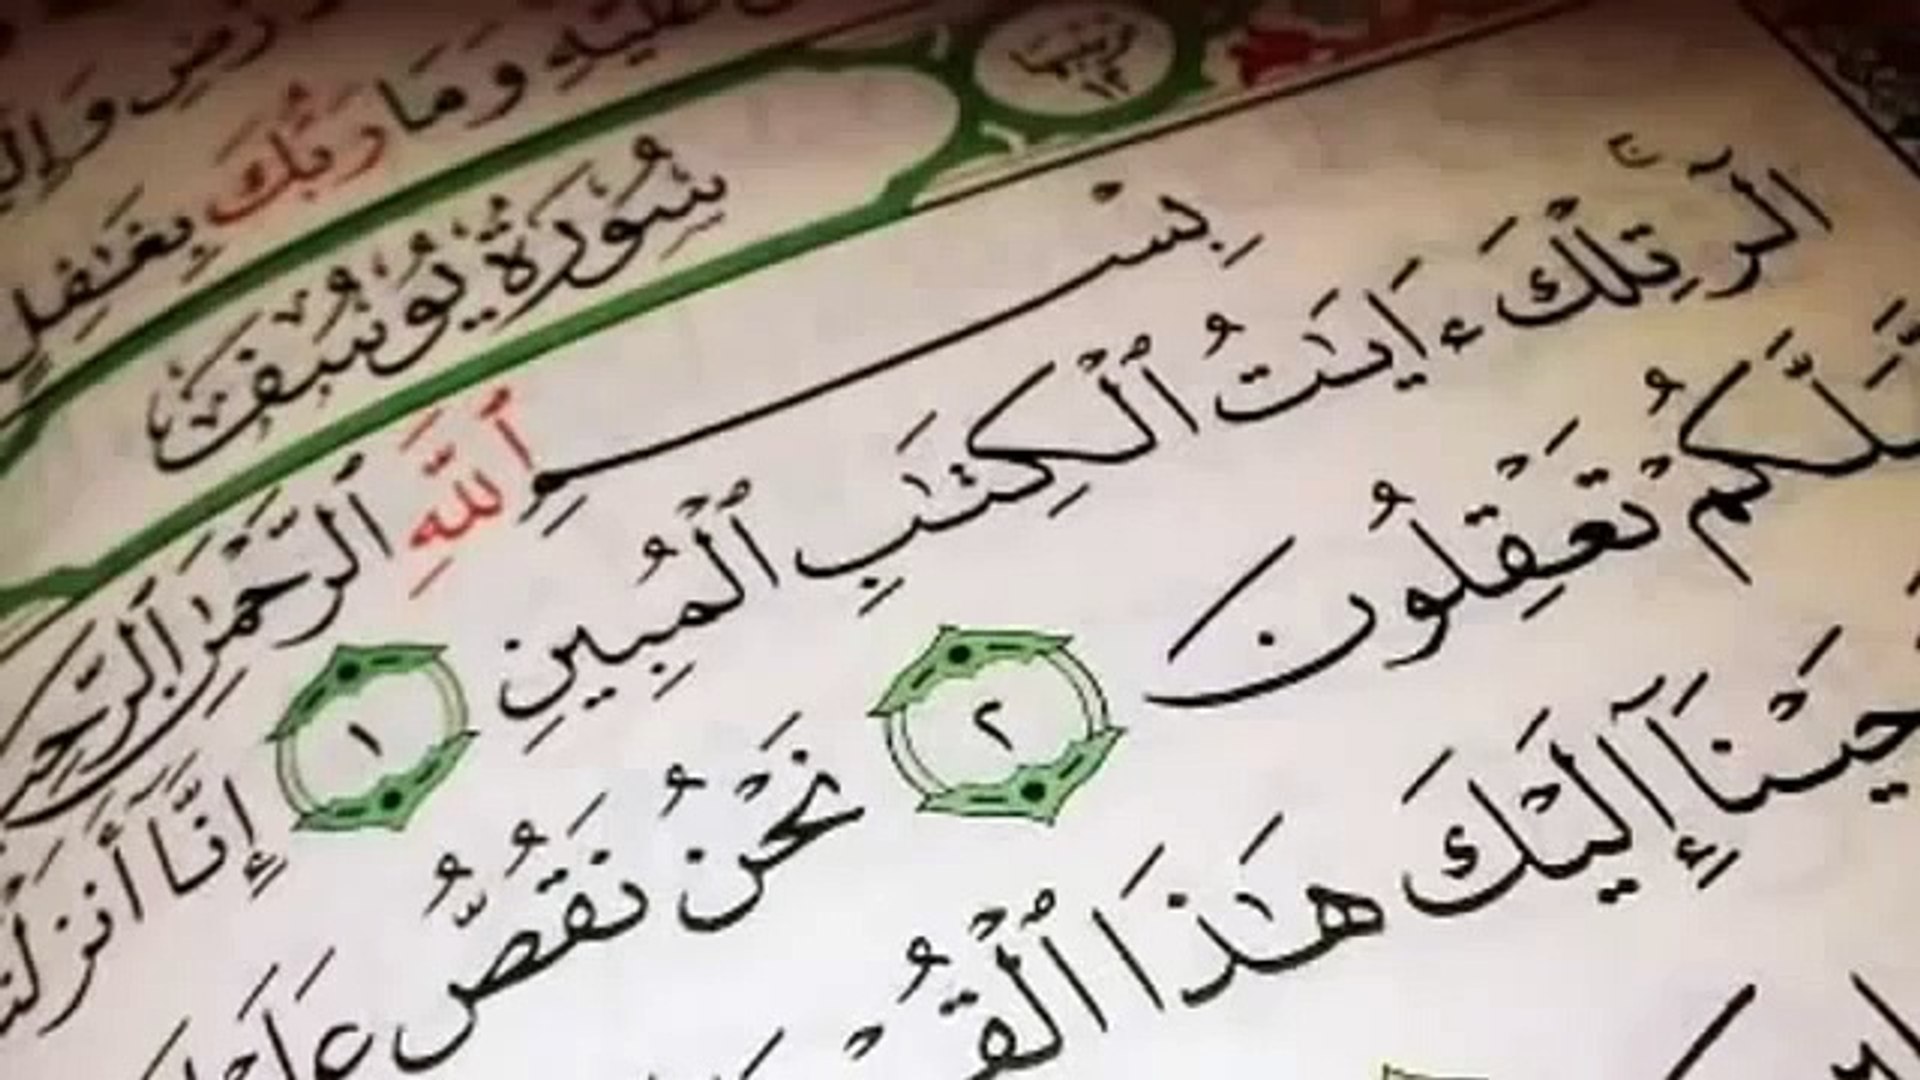 رْضِ وَإِلَيْ
وَمَا رَبُّكَ بِغَٰفِلٍ
سُورَةُ يُوسُفَ
بِسْمِ ٱللَّهِ ٱلرَّحْمَٰنِ ٱلرَّحِي
الٓر ۚ تِلْكَ ءَايَٰتُ ٱلْكِتَٰبِ ٱلْمُبِينِ ١ إِنَّآ أَنزَلْنَ
لَّعَلَّكُمْ تَعْقِلُونَ ٢ نَحْنُ نَقُصُّ عَ
حَيْنَآ إِلَيْكَ هَٰذَا ٱلْقُرْ